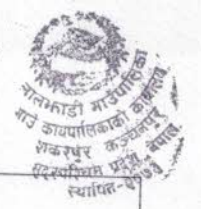 लालझाडी गाउँपालिका
गाउँ कार्यपालिकाको कार्यालय
शंकरपुर कञ्चनपुर
सुदूरपश्चिम प्रदेश नेपाल
स्थापित-२०७३